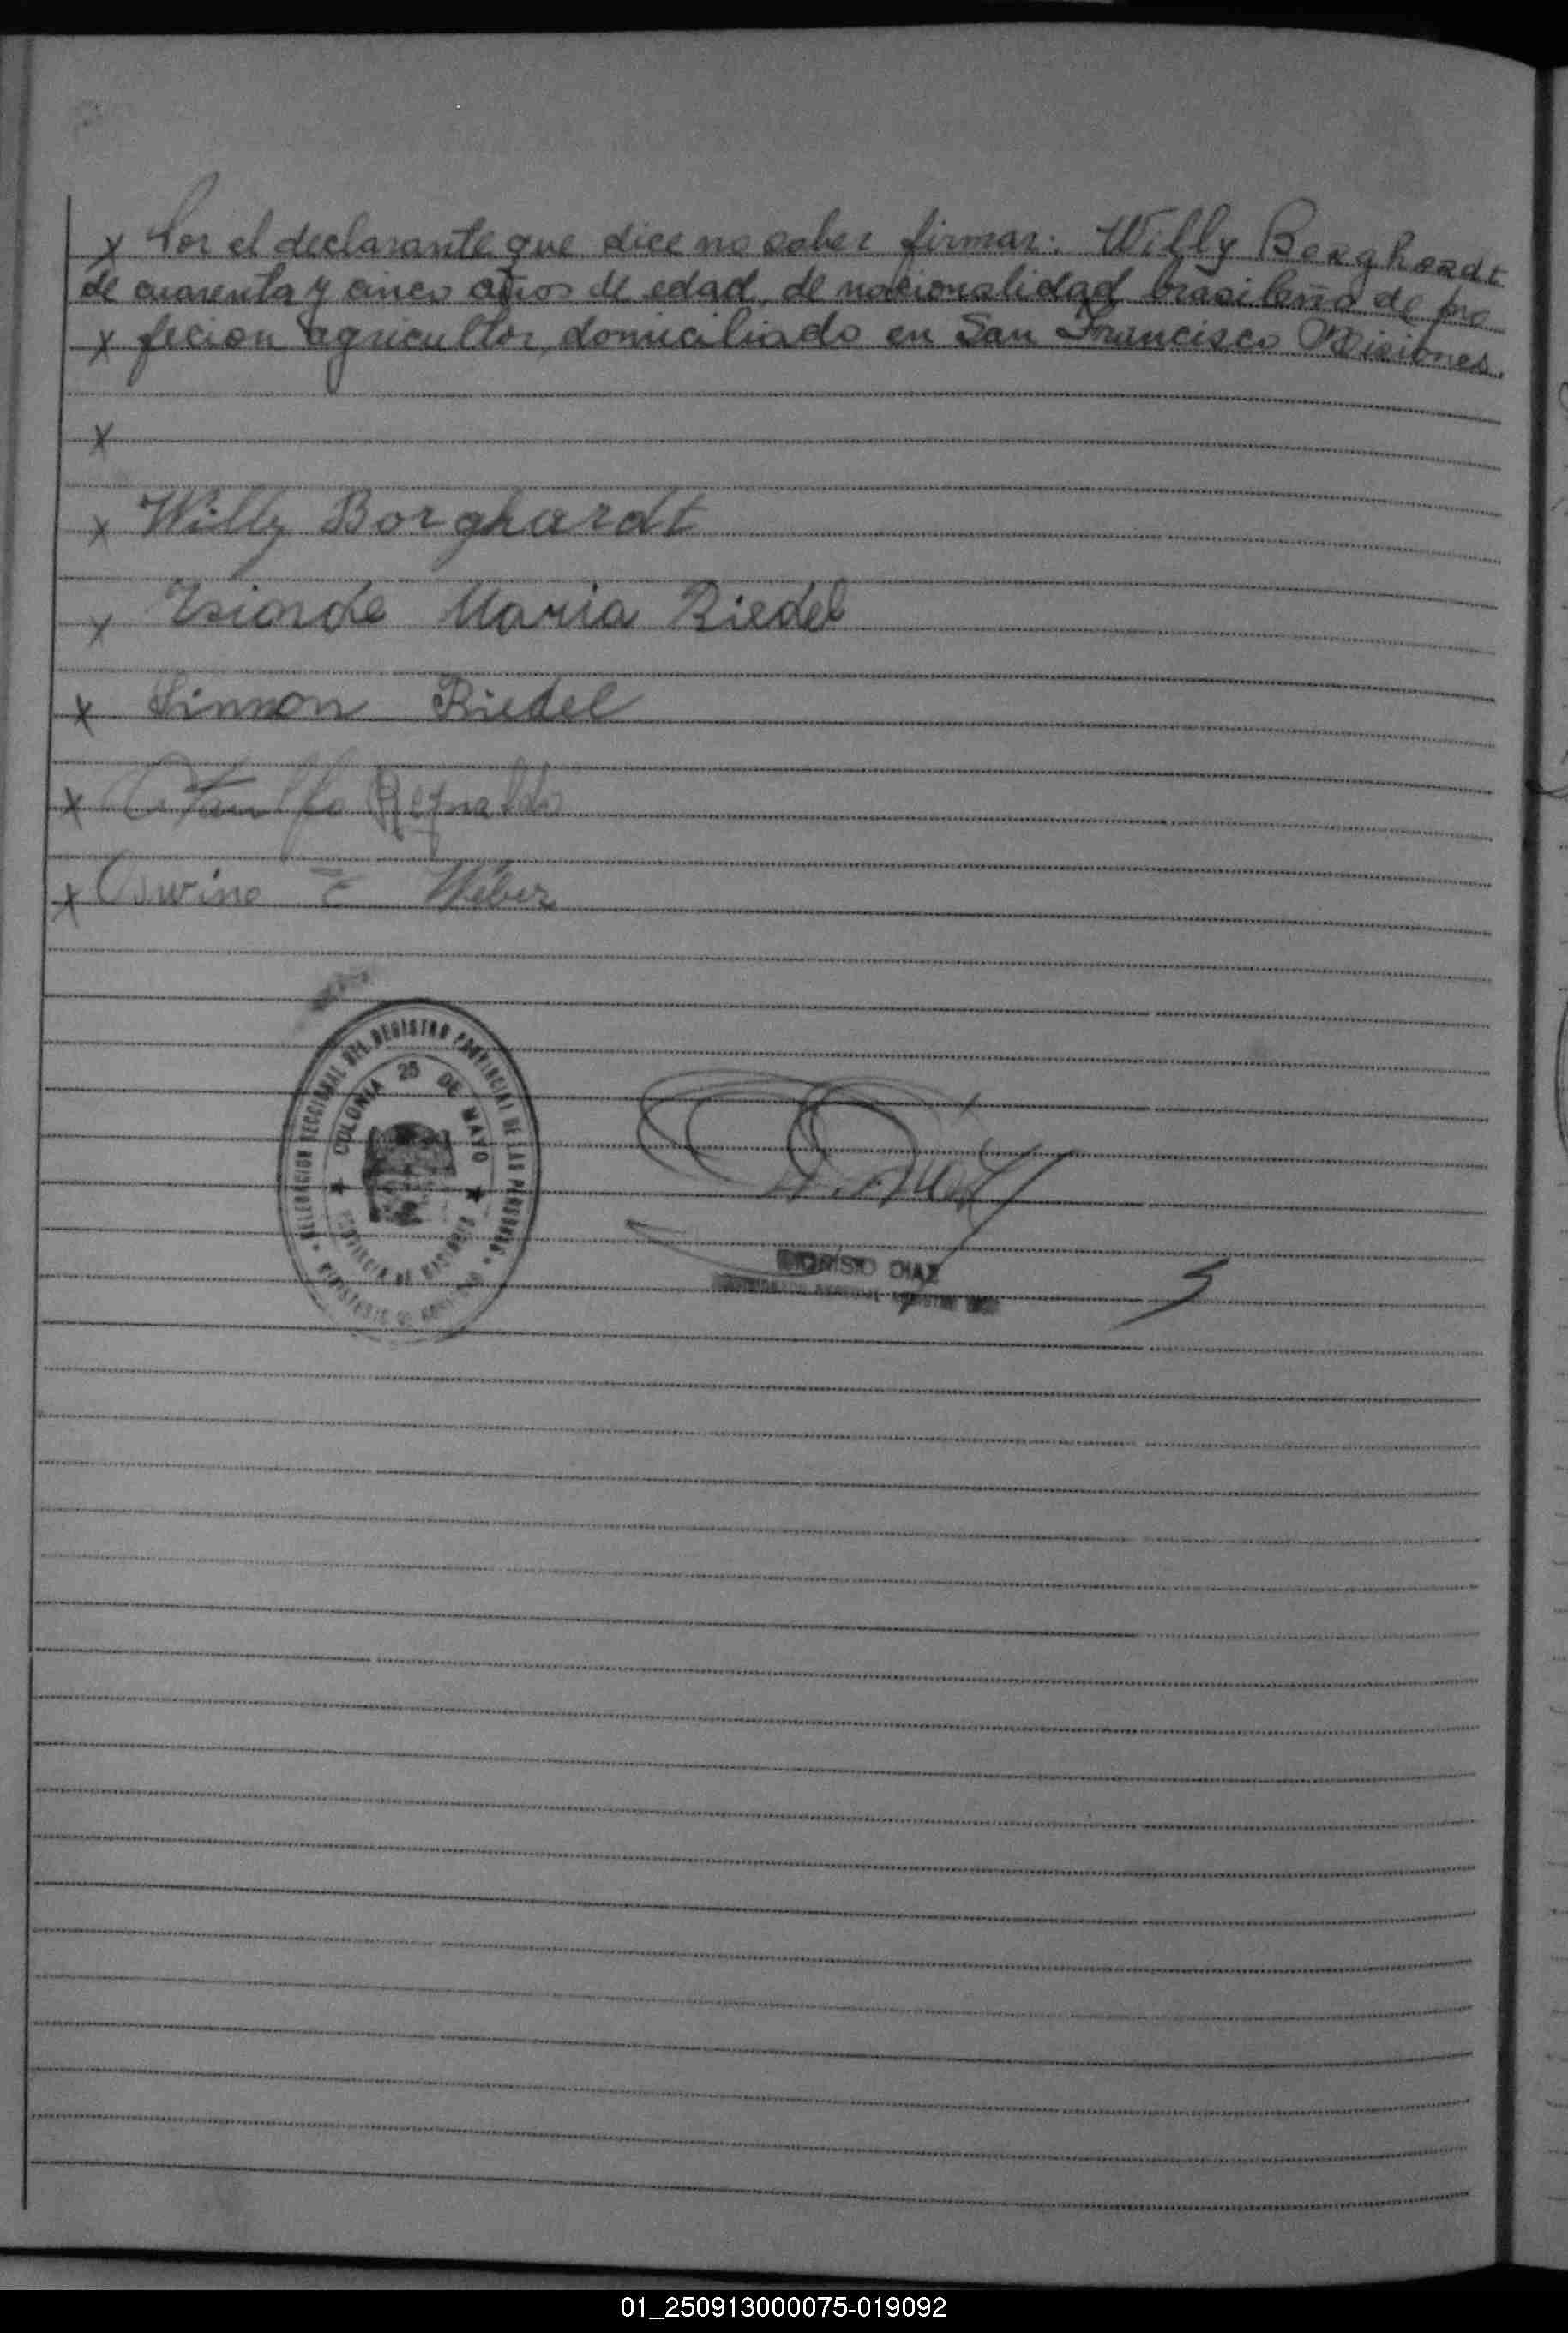 x Por el declarante que dice no saber firmar: Willy Borghardt
de cuarenta y cinco años de edad, de nacionalidad brasileña de pro
x fecion agricultor, domiciliado en San Francisco Misiones.
x
x Willy Borghardt
x Maria Riedel
x Simmon Riedel
x Reynaldo
x Oswino E Weber
DELEGACION SECCIONAL DEL REGISTRO PROVINCIAL DE LAS PERSONAS
COLONIA 25 DE MAYO
PROVINCIA DE MISIONES
MINISTERIO DE
D. Diaz
DIONISIO DIAZ
01_250913000075-019092